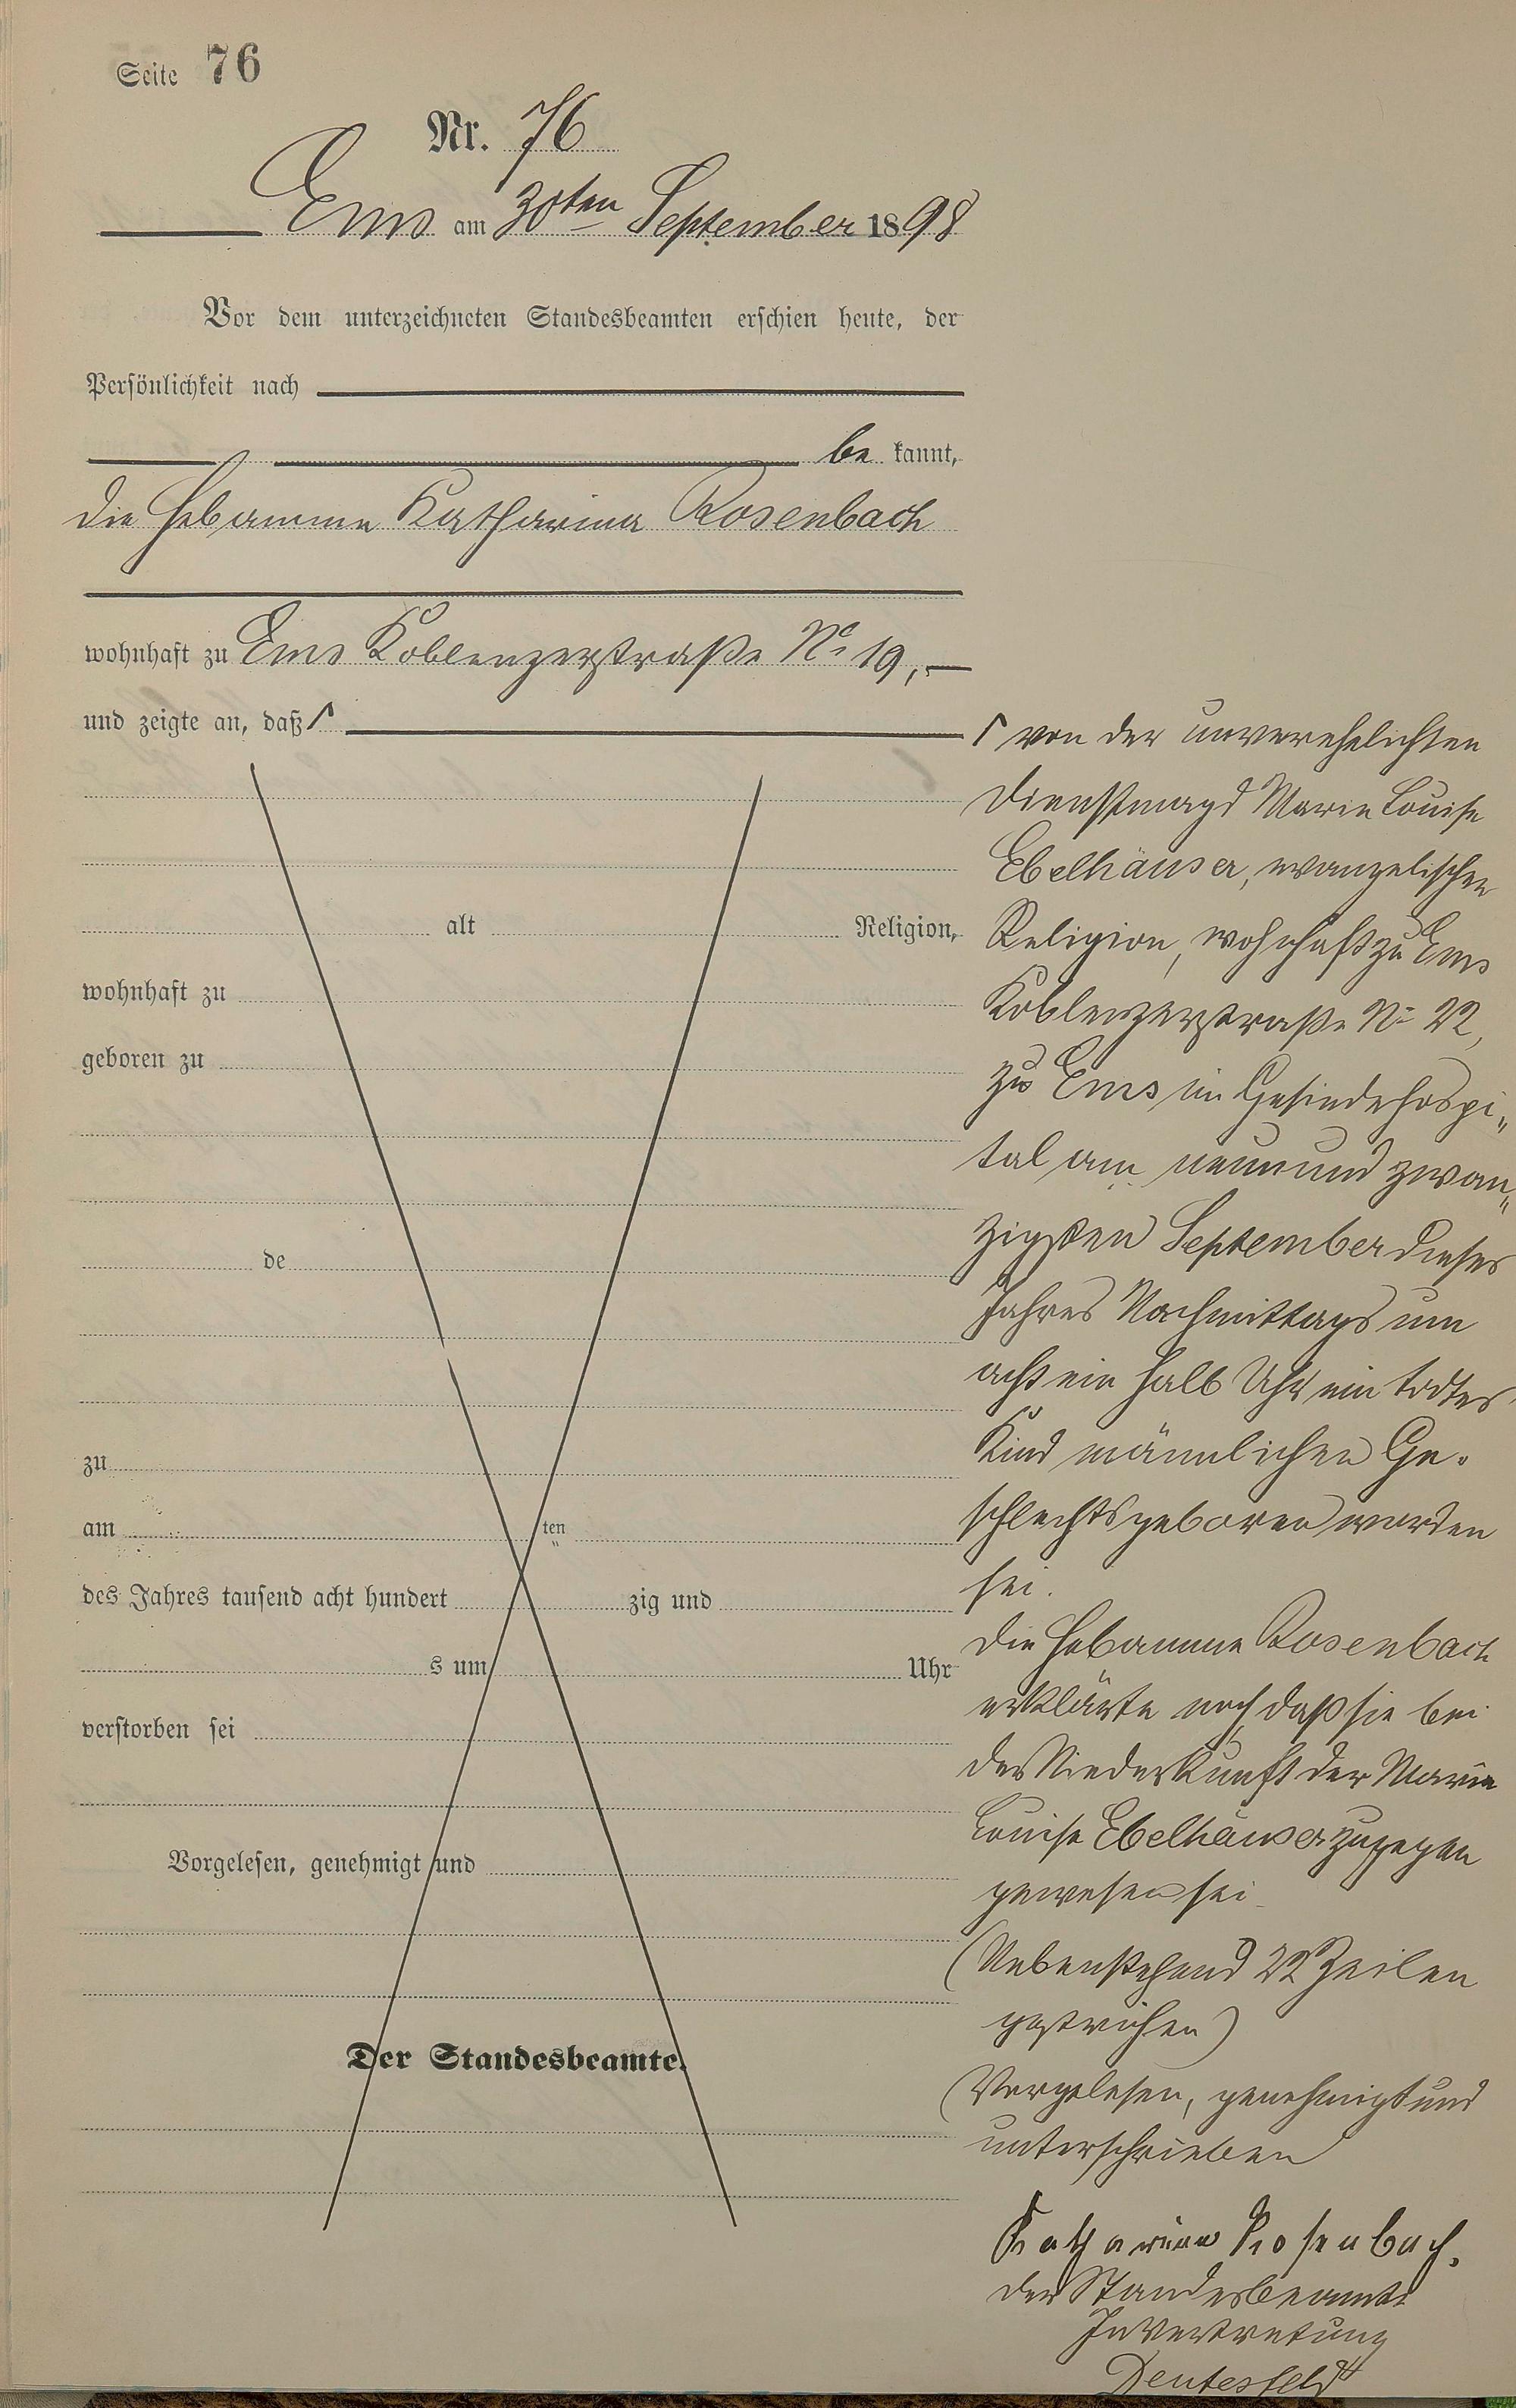 Seite 76
Nr. 76
Ems am 30ten September 1898
Vor dem unterzeichneten Standesbeamten erschien heute, der
Persönlichkeit nach
be kannt,
die Hebamme Katharina Rosenbach
wohnhaft zu Ems Koblenzerstraße No 19,
und zeigte an, daß
alt Religion,
wohnhaft zu
geboren zu
de
zu
am ten
des Jahres tausend acht hundert zig und
s um Uhr
verstorben sei
Vorgelesen, genehmigt und
Der Standesbeamte.
von der unverehelichten
Dienstmagd Marie Louise
Ebelhäuser, evangelischer
Religion, wohnhaft zu Ems
Koblenzerstraße No 22,
zu Ems im Gesindehospi„
tal am neunund zwan„
zigsten September dieses
Jahres Nachmittags um
acht ein halb Uhr ein todtes
Kind männlichen Ge-
schlechts geboren worden
sei.
Die Hebamme Rosenbach
erklärte noch, daß sie bei
der Niederkunft der Marie
Louise Ebelhäuser zugegen
gewesen sei
(Nebenstehend 22 Zeilen
gestrichen)
Vorgelesen, genehmigt und
unterschrieben
Katharina Rosenbach.
Der Standesbeamte
In Vertretung